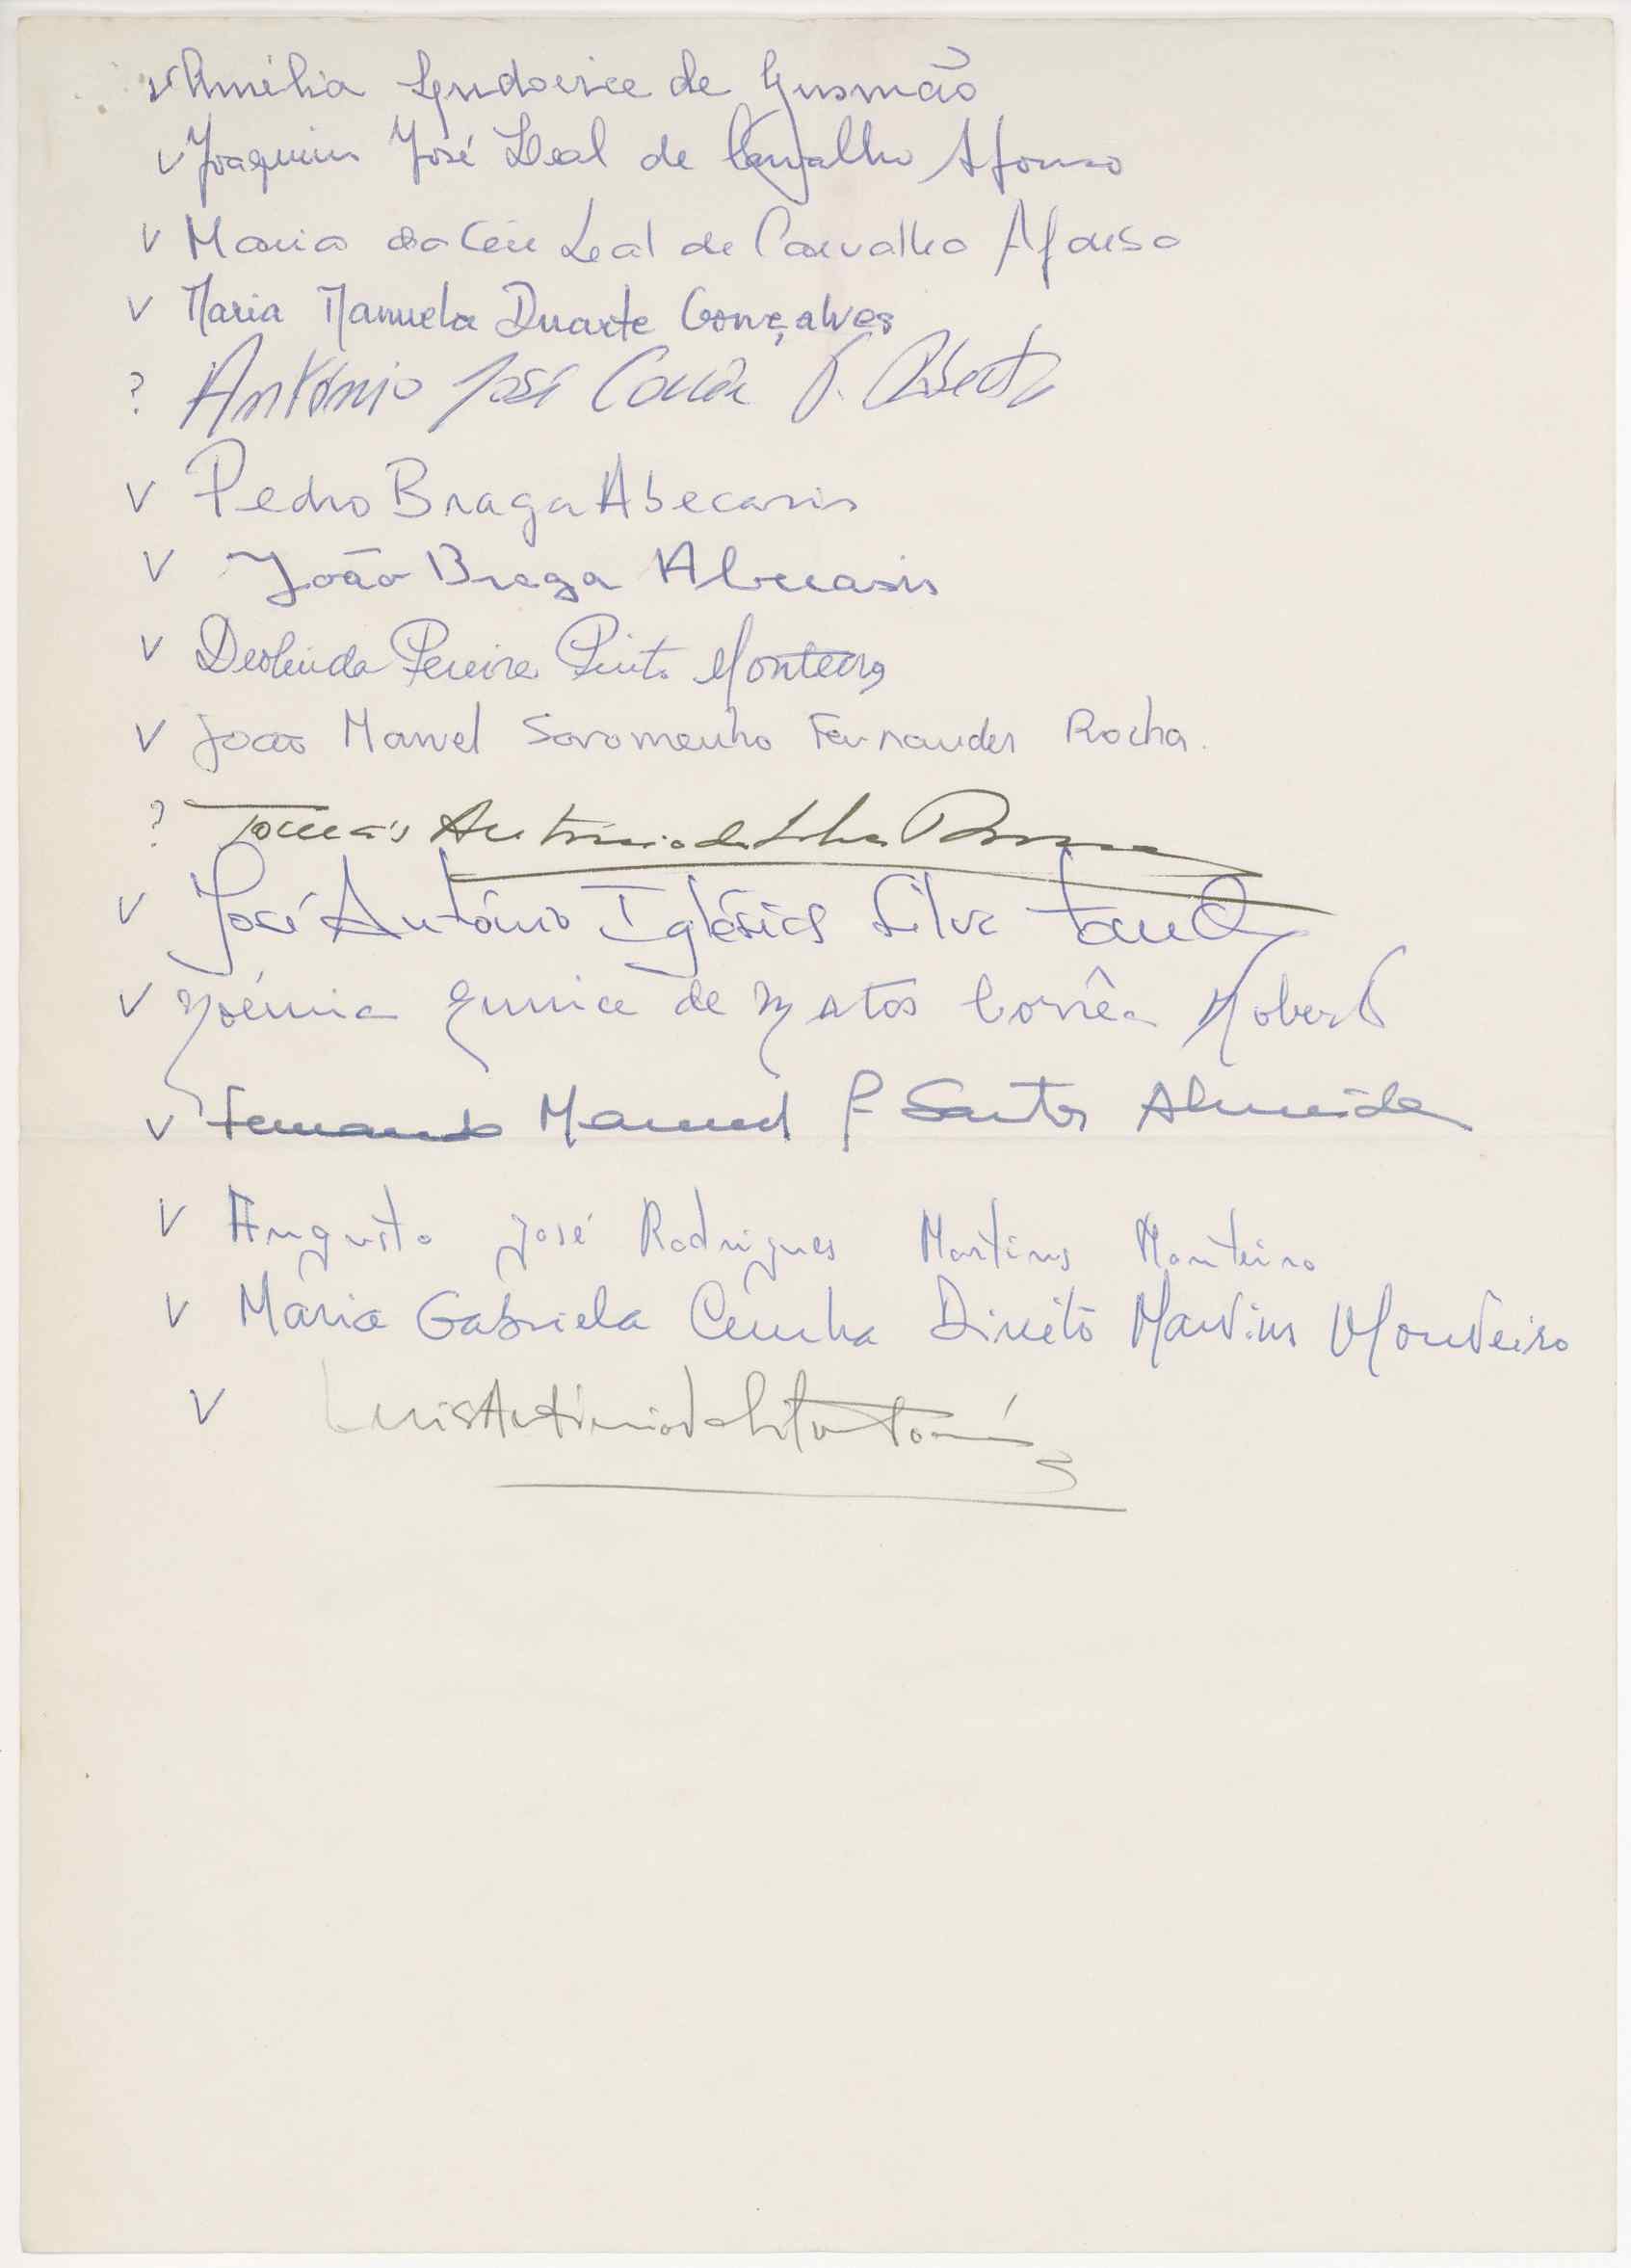 V Amélia Ludovice de Gusmão
V Joaquim José Leal de Carvalho Afonso
V Maria do Céu Leal de Carvalho Afonso
V Maria Manuela Duarte Gonçalves
? António José
V Pedro Braga Abecasis
V João Braga Abecasis
V Deolinda Pereira Pinto Monteiro
V João Manuel Soromenho Fernandes Rocha.
? Tomás António da Silva
V José António Iglésias Silva
V Noémia Eunice de Matos Corrêa Robert
V Fernando Manuel F Santos Almeida
V Augusto José Rodrigues Martins Monteiro
V Maria Gabriela Cunha Direito Martins Monteiro
V Luis António da Silva Tomás